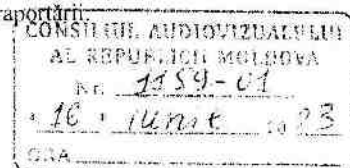 raportării.
CONSILIUL AUDIOVIZUALULUI
AL REPUBLICII MOLDOVA
Nr. 1159-01
" 16 " iunie 20 23
ORA